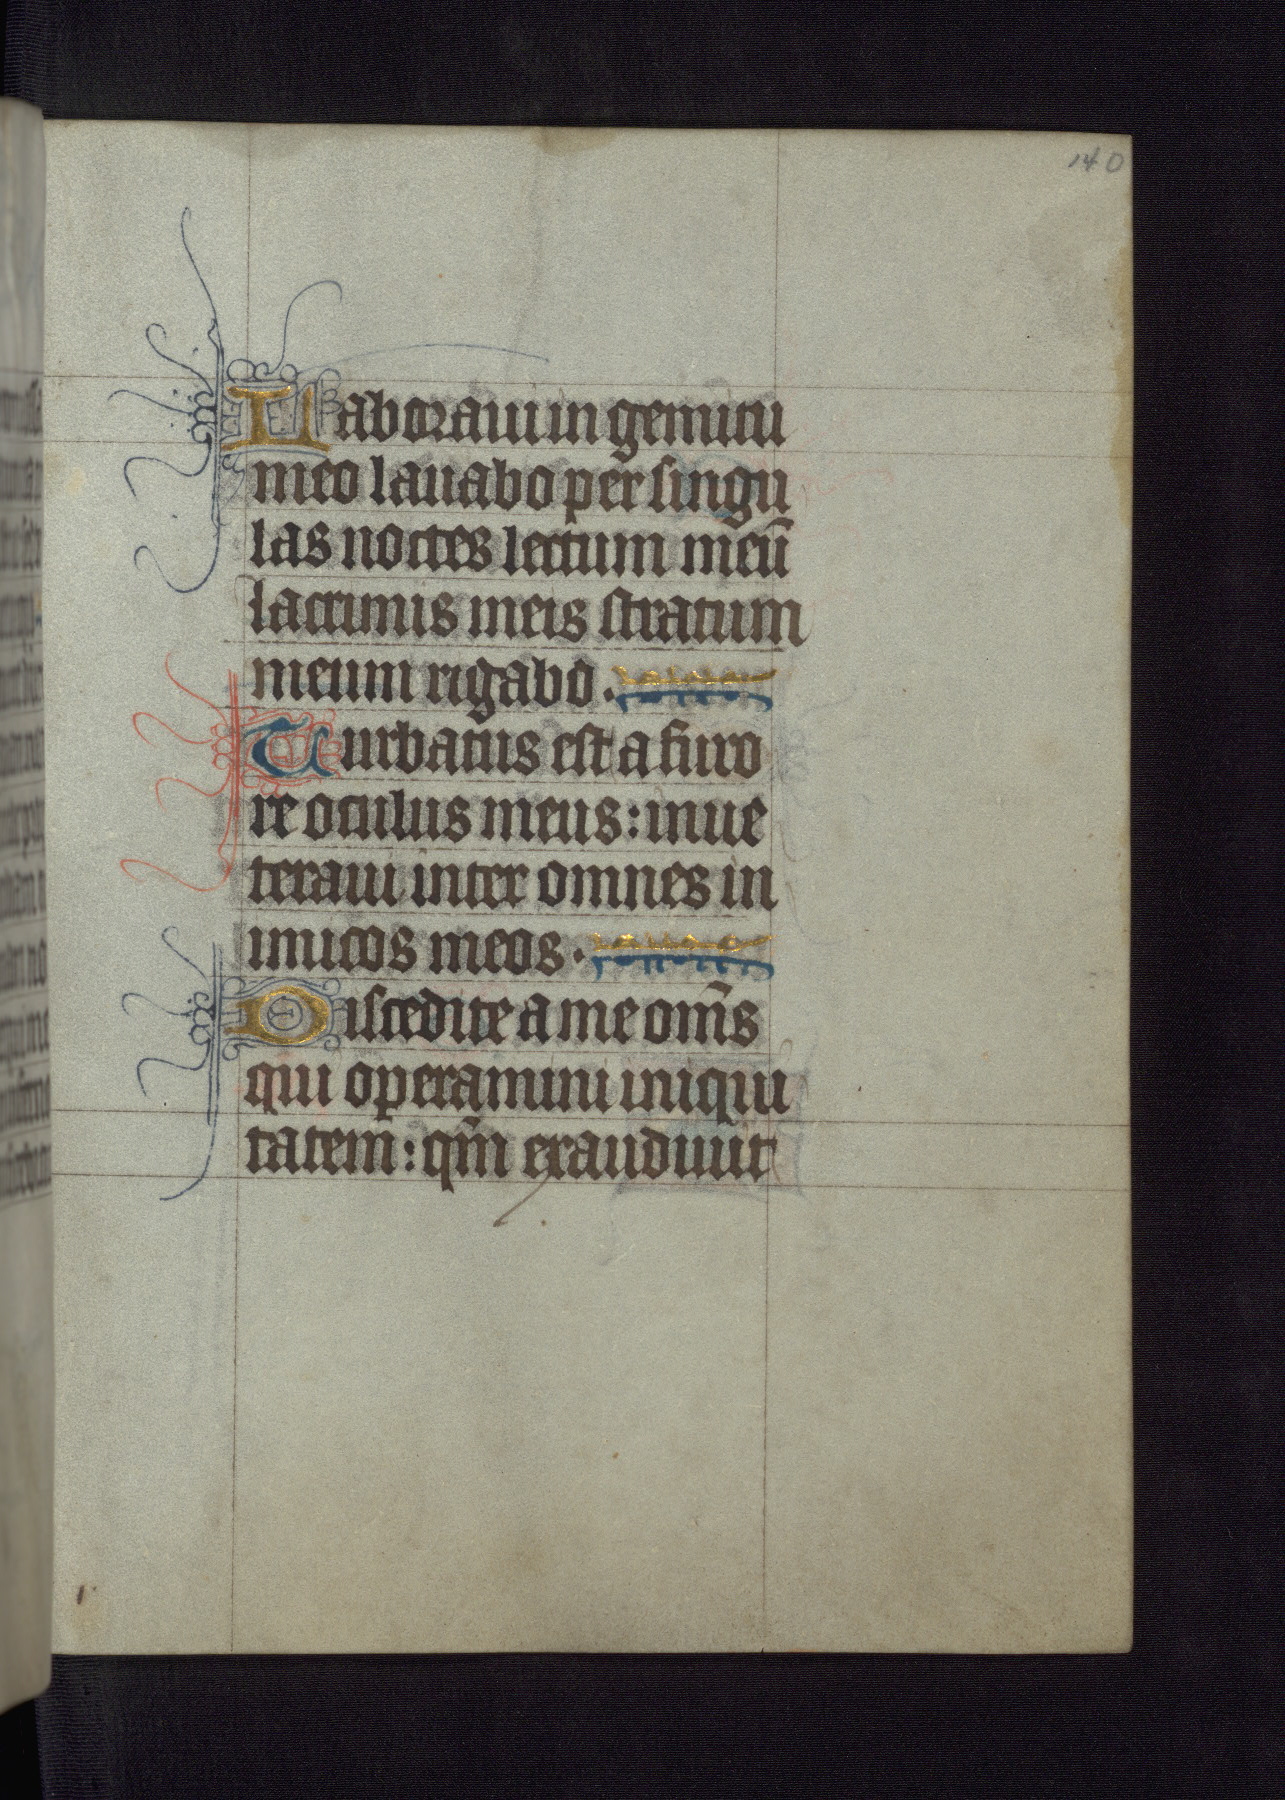 140
Laboraui in gemitu
meo lauabo per singu
las noctes lectum meū
lacrimis meis stratum
meum rigabo.
Turbatus est a furo
re oculus meus: inue
teraui inter omnes in
imicos meos.
Discedite a me om̄s
qui operamini iniqui
tatem: qm̄ exaudiuit